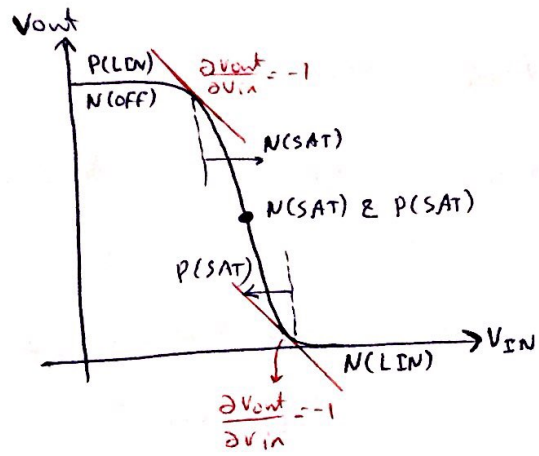 Vout
P(LIN)
N(OFF)
∂Vout/∂Vin = -1
N(SAT)
N(SAT) & P(SAT)
P(SAT)
VIN
N(LIN)
∂Vout/∂Vin = -1